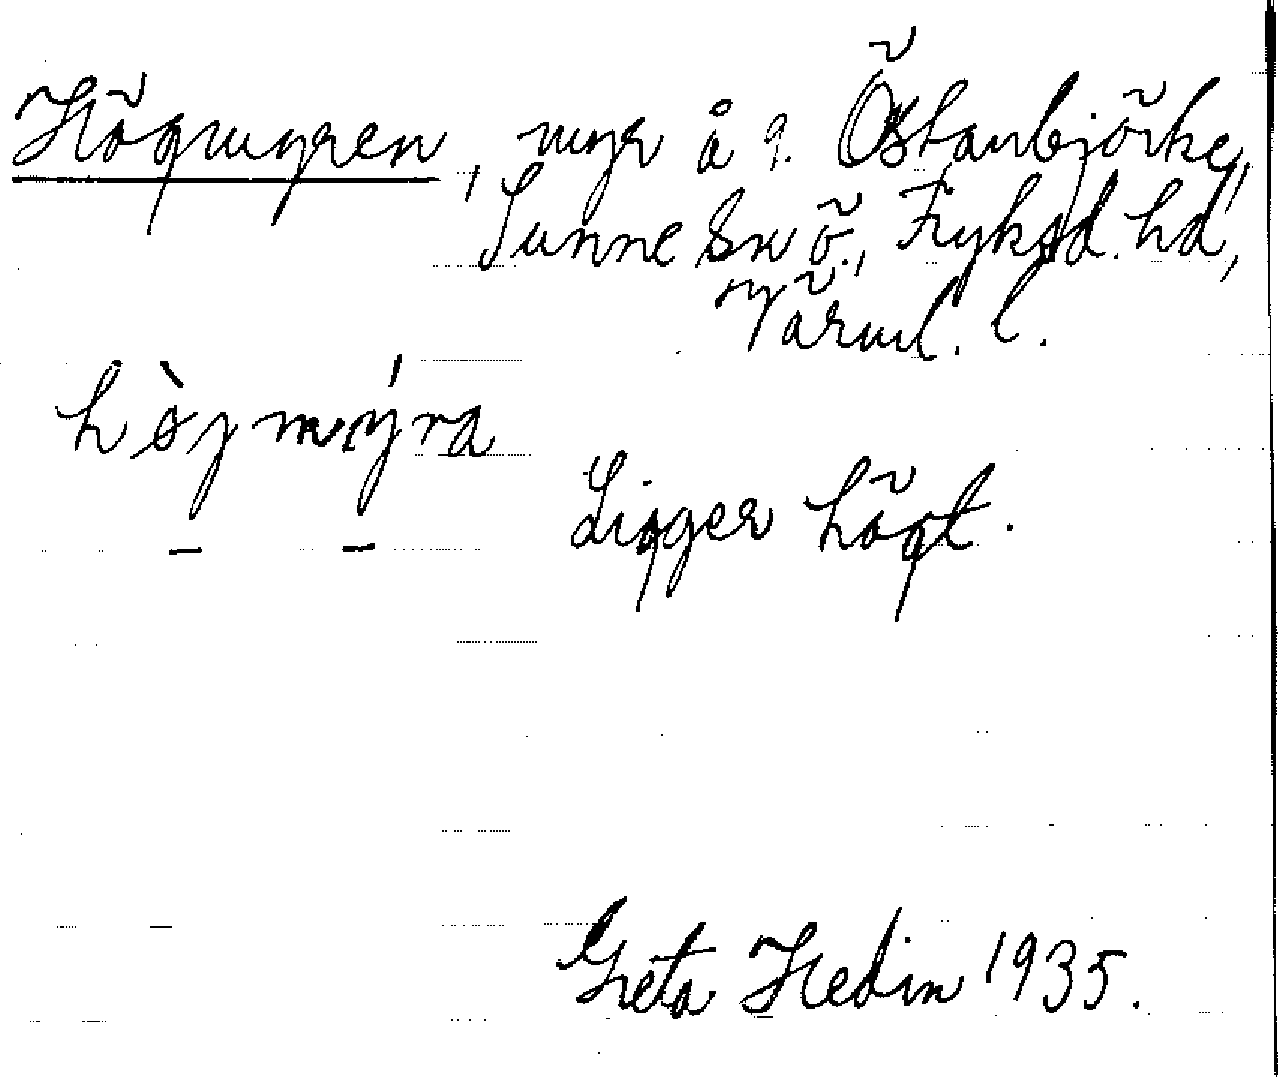 Högmyren, myr å g. Östanbjörke,
Sunne sn ö., Fryksd. hd,
Värml. l.
hòjmýra
Ligger högt.
Greta Hedin 1935.